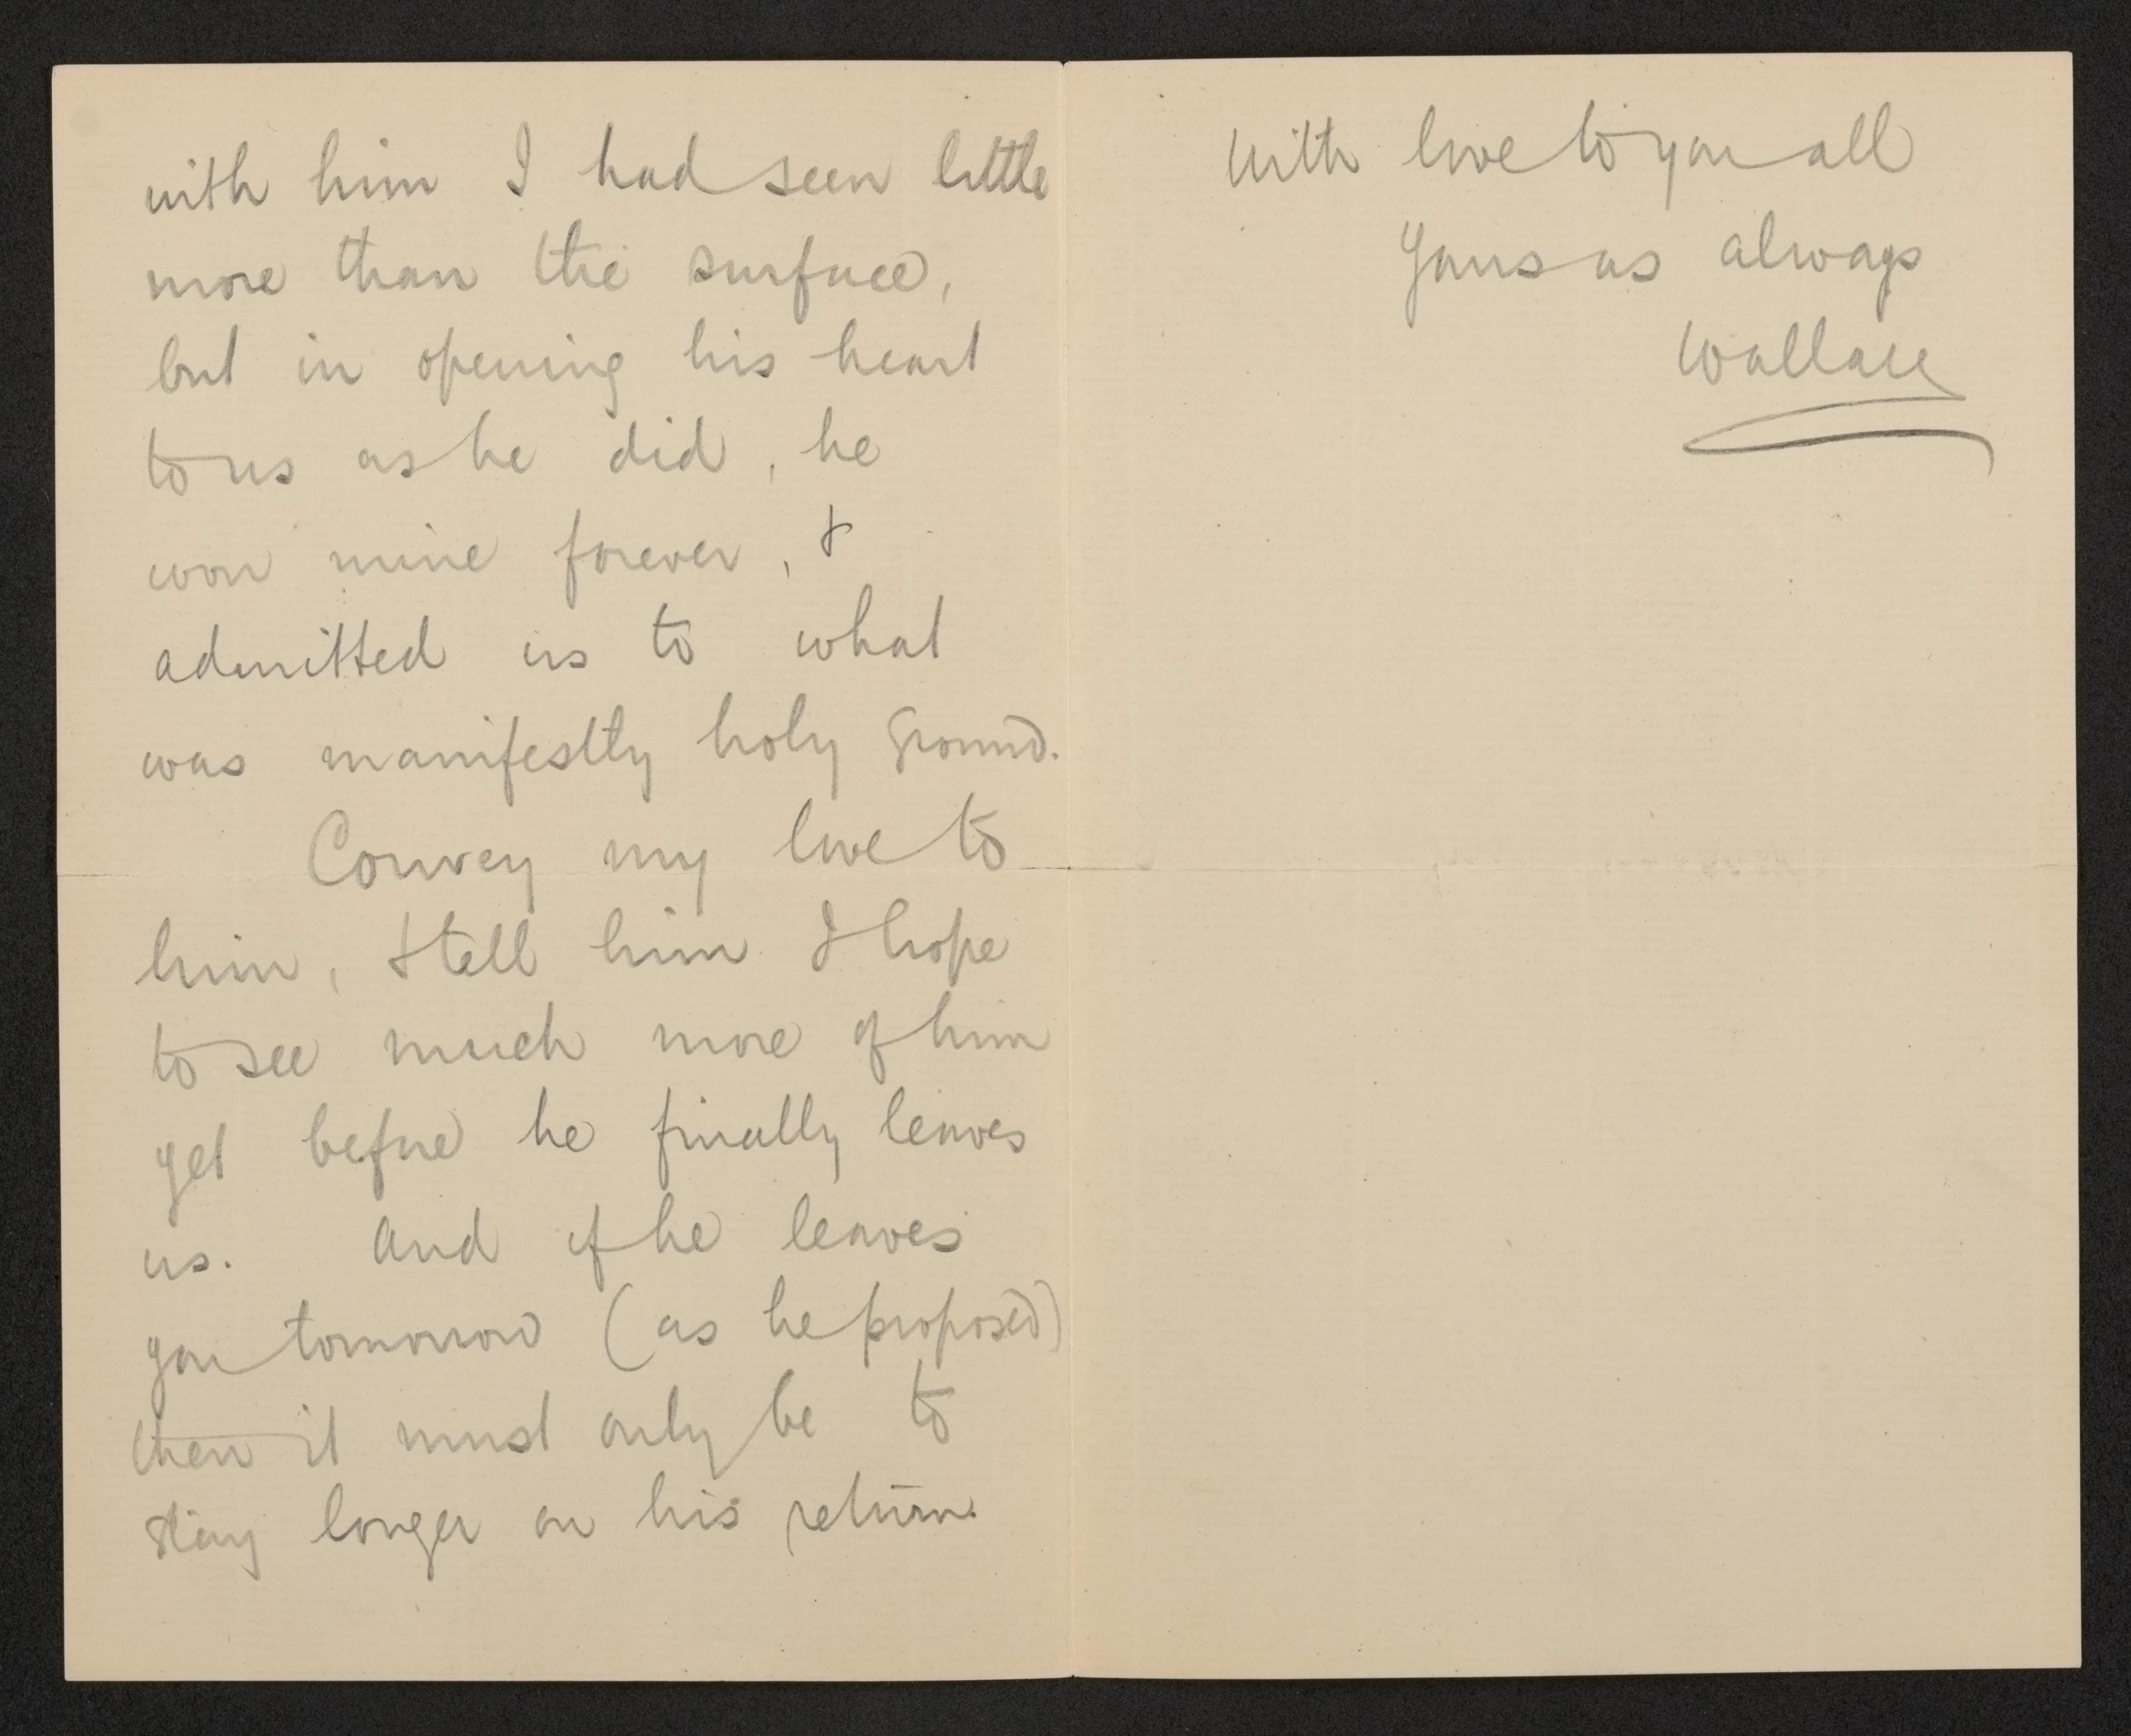 with him I had seen little
more than the surface,
but in opening his heart
to us as he did, he
won mine forever, &
admitted us to what
was manifestly holy ground.
Convey my love to
him, & tell him I hope
to see much more of him
yet before he finally leaves
us. And if he leaves
you tomorrow (as he proposed)
then it must only be to
stay longer on his return.
With love to you all
Yours as always
Wallace